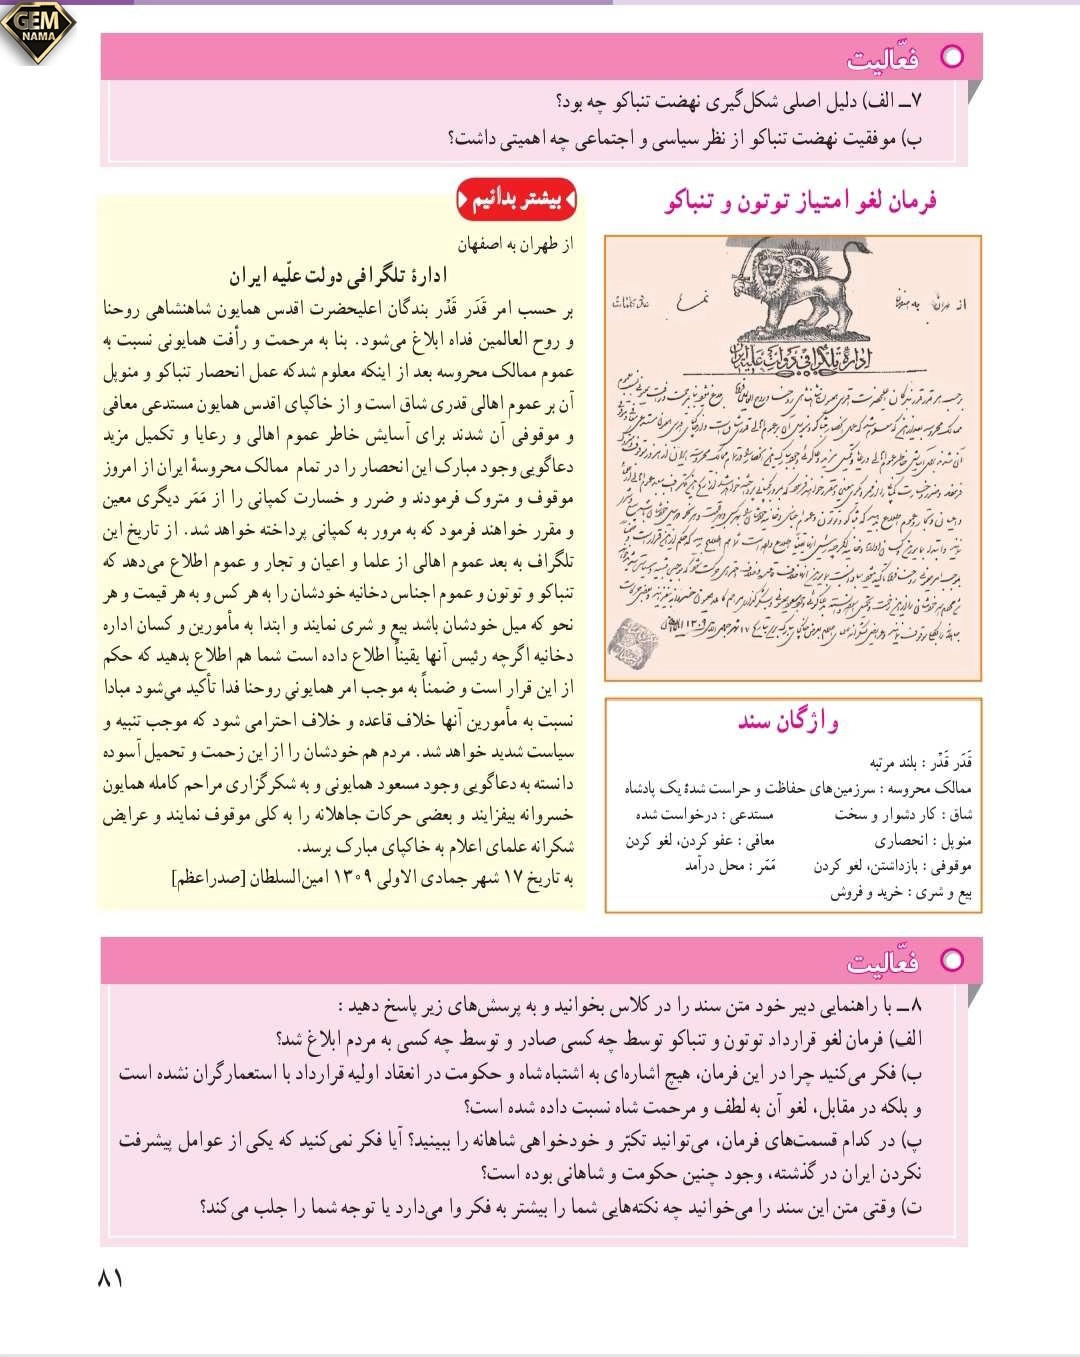 GEM
NAMA
فعّالیت
۷ــ الف) دلیل اصلی شکل‌گیری نهضت تنباکو چه بود؟
ب) موفقیت نهضت تنباکو از نظر سیاسی و اجتماعی چه اهمیتی داشت؟
فرمان لغو امتیاز توتون و تنباکو
اداره تلگرافی دولت علیه ایران
واژگان سند
قَدَر قَدْر : بلند مرتبه
ممالک محروسه : سرزمین‌های حفاظت و حراست شدهٔ یک پادشاه
شاق : کار دشوار و سخت مستدعی : درخواست شده
منوپل : انحصاری معافی : عفو کردن، لغو کردن
موقوفی : بازداشتن، لغو کردن مَمَر : محل درآمد
بیع و شری : خرید و فروش
بیشتر بدانیم
از طهران به اصفهان
ادارهٔ تلگرافی دولت علّیه ایران
بر حسب امر قَدَر قَدْر بندگان اعلیحضرت اقدس همایون شاهنشاهی روحنا
و روح العالمین فداه ابلاغ می‌شود. بنا به مرحمت و رأفت همایونی نسبت به
عموم ممالک محروسه بعد از اینکه معلوم شدکه عمل انحصار تنباکو و منوپل
آن بر عموم اهالی قدری شاق است و از خاکپای اقدس همایون مستدعی معافی
و موقوفی آن شدند برای آسایش خاطر عموم اهالی و رعایا و تکمیل مزید
دعاگویی وجود مبارک این انحصار را در تمام ممالک محروسهٔ ایران از امروز
موقوف و متروک فرمودند و ضرر و خسارت کمپانی را از مَمَر دیگری معین
و مقرر خواهند فرمود که به مرور به کمپانی پرداخته خواهد شد. از تاریخ این
تلگراف به بعد عموم اهالی از علما و اعیان و تجار و عموم اطلاع می‌دهد که
تنباکو و توتون و عموم اجناس دخانیه خودشان را به هر کس و به هر قیمت و هر
نحو که میل خودشان باشد بیع و شری نمایند و ابتدا به مأمورین و کسان اداره
دخانیه اگرچه رئیس آنها یقیناً اطلاع داده است شما هم اطلاع بدهید که حکم
از این قرار است و ضمناً به موجب امر همایونی روحنا فدا تأکید می‌شود مبادا
نسبت به مأمورین آنها خلاف قاعده و خلاف احترامی شود که موجب تنبیه و
سیاست شدید خواهد شد. مردم هم خودشان را از این زحمت و تحمیل آسوده
دانسته به دعاگویی وجود مسعود همایونی و به شکرگزاری مراحم کامله همایون
خسروانه بیفزایند و بعضی حرکات جاهلانه را به کلی موقوف نمایند و عرایض
شکرانه علمای اعلام به خاکپای مبارک برسد.
به تاریخ ۱۷ شهر جمادی الاولی ۱۳۰۹ امین‌السلطان [صدراعظم]
فعّالیت
۸ــ با راهنمایی دبیر خود متن سند را در کلاس بخوانید و به پرسش‌های زیر پاسخ دهید :
الف) فرمان لغو قرارداد توتون و تنباکو توسط چه کسی صادر و توسط چه کسی به مردم ابلاغ شد؟
ب) فکر می‌کنید چرا در این فرمان، هیچ اشاره‌ای به اشتباه شاه و حکومت در انعقاد اولیه قرارداد با استعمارگران نشده است
و بلکه در مقابل، لغو آن به لطف و مرحمت شاه نسبت داده شده است؟
پ) در کدام قسمت‌های فرمان، می‌توانید تکبّر و خودخواهی شاهانه را ببینید؟ آیا فکر نمی‌کنید که یکی از عوامل پیشرفت
نکردن ایران در گذشته، وجود چنین حکومت و شاهانی بوده است؟
ت) وقتی متن این سند را می‌خوانید چه نکته‌هایی شما را بیشتر به فکر وا می‌دارد یا توجه شما را جلب می‌کند؟
۸۱